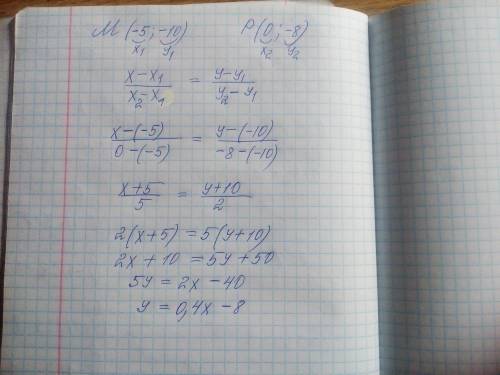 M (-5; -10) P(0; -8)
x₁ y₁ x₂ y₂
x-x₁ / x₂-x₁ = y-y₁ / y₂-y₁
x-(-5) / 0-(-5) = y-(-10) / -8-(-10)
x+5 / 5 = y+10 / 2
2(x+5) = 5(y+10)
2x+10 = 5y+50
5y = 2x-40
y = 0,4x-8